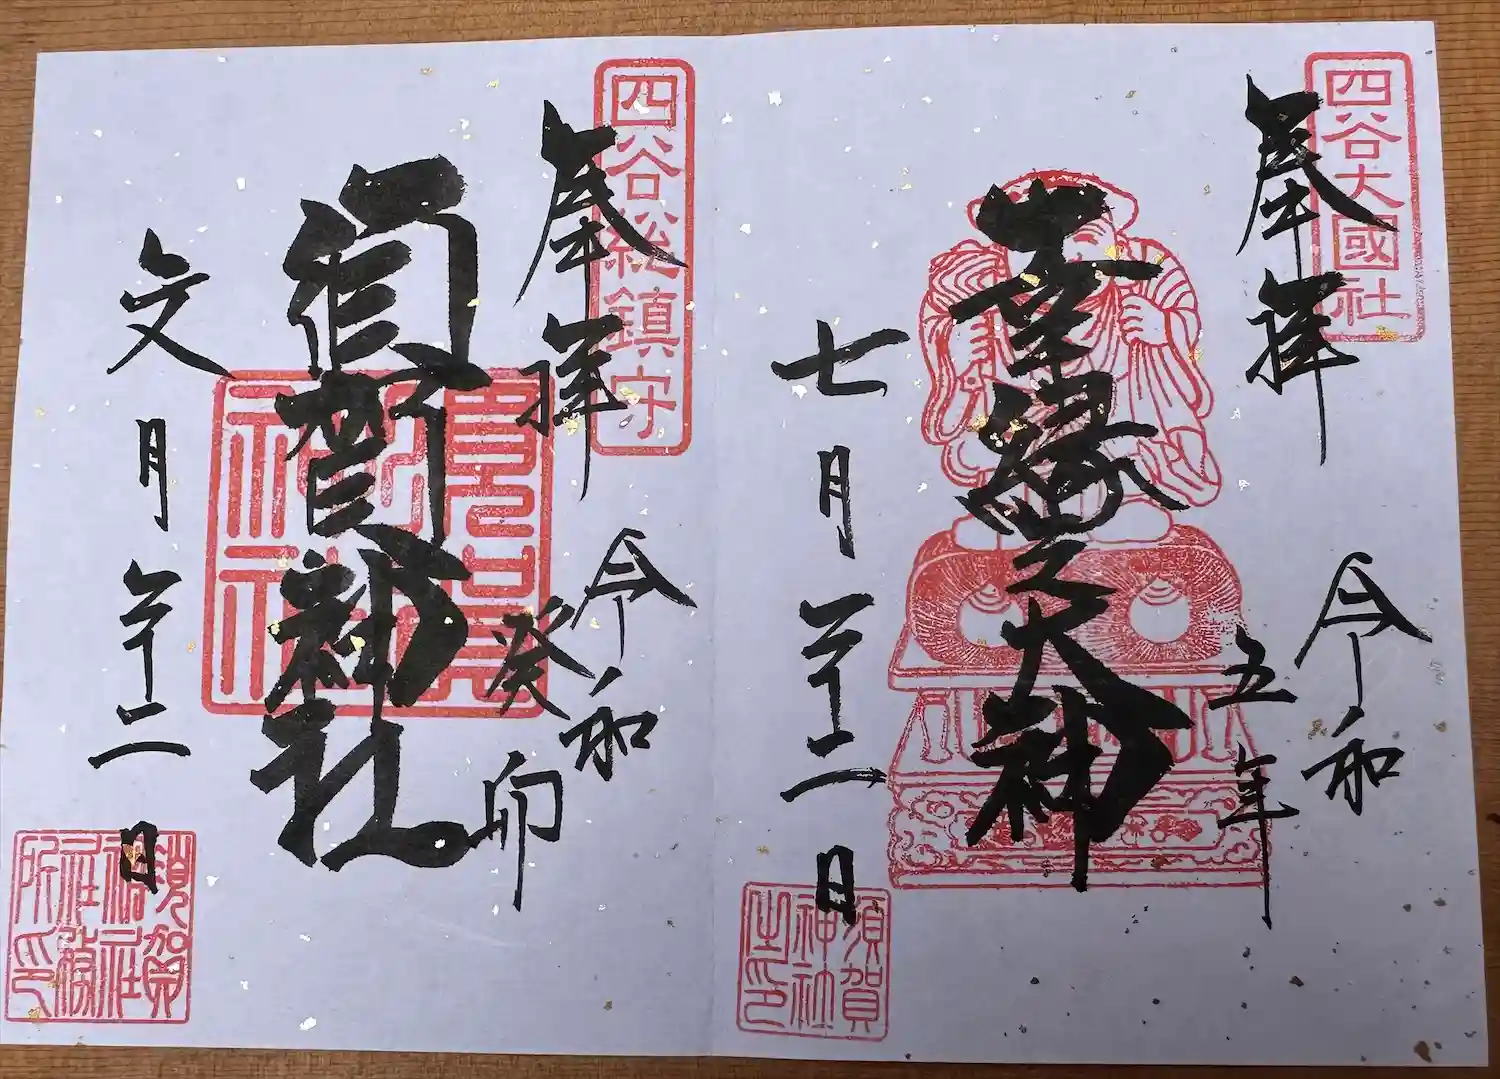 四谷大國社
奉拝
令和
五年
幸縁之大神
七月二十二日
須賀
神社
之印
四谷総鎮守
奉拝
令和
癸卯
須賀神社
須賀
神社
文月二十二日
須賀
神社
社務
所印